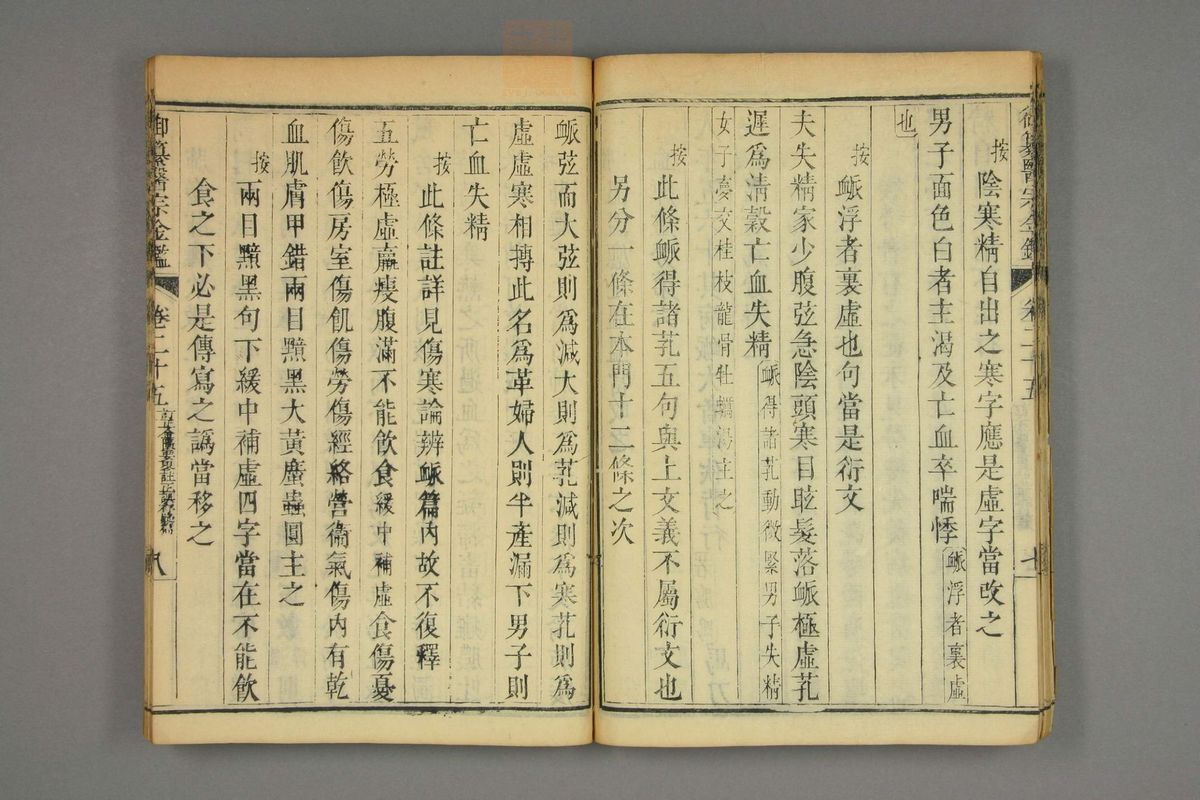 御纂醫宗金鑑 卷二十五 七
按陰寒精自出之寒字應是虛字當改之
男子面色白者主渴及亡血卒喘悸脈浮者裏虛
也
按脈浮者裏虛也句當是衍文
夫失精家少腹弦急陰頭寒目眩髮落脈極虛芤
遲爲清穀亡血失精脈得諸芤動微緊男子失精
女子夢交桂枝龍骨牡蠣湯主之
按此條脈得諸芤五句與上文義不屬衍文也
另分一條在本門十二條之次
脈弦而大弦則爲減大則爲芤減則爲寒芤則爲
虛虛寒相摶此名爲革婦人則半產漏下男子則
亡血失精
按此條註詳見傷寒論辨脈篇內故不復釋
五勞極虛羸瘦腹滿不能飲食緩中補虛食傷憂
傷飲傷房室傷飢傷勞傷經絡營衞氣傷內有乾
血肌膚甲錯兩目黯黑大黃䗪蟲圓主之
按兩目黯黑句下緩中補虛四字當在不能飲
食之下必是傳寫之譌當移之
御纂醫宗金鑑 卷二十五 八